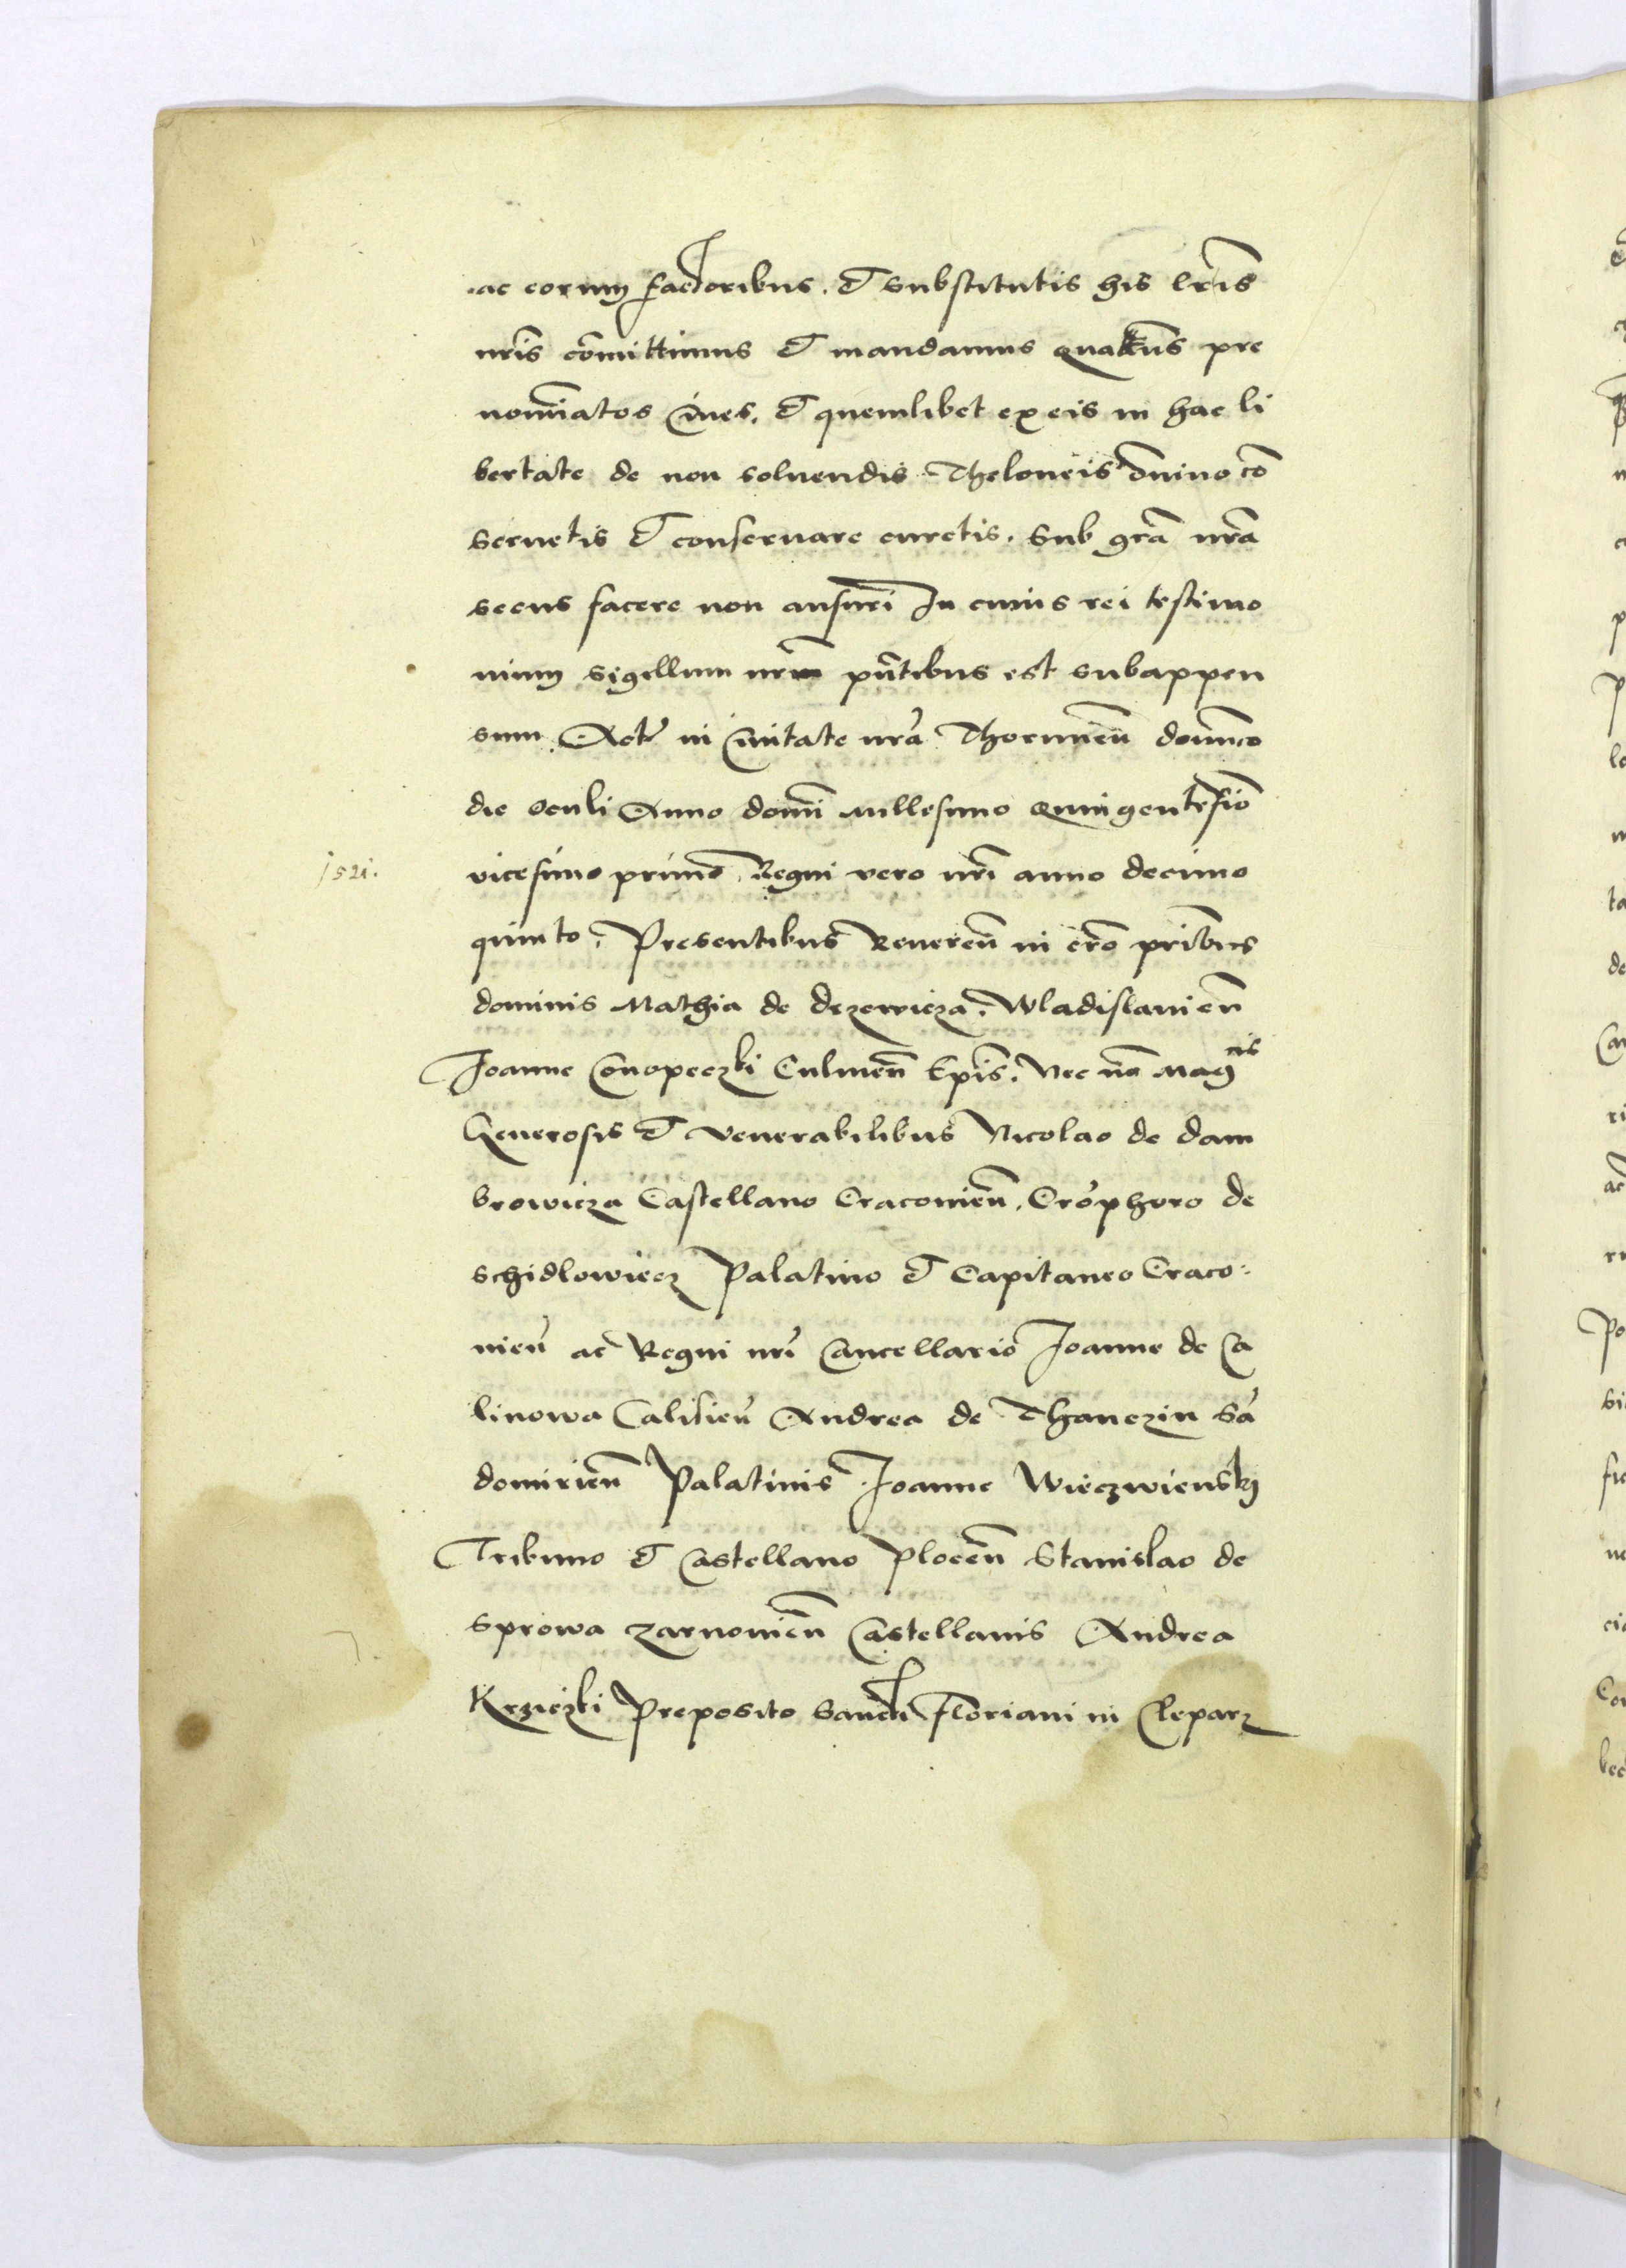 ac eorum factoribus. et substitutis his lris
nris comittimus et mandamus quatenus pre
nominatos Cives. et quemlibet ex eis in hac li
bertate de non solvendis Theloneis omnino con
servetis et conservare curetis. Sub gra nra
secus facere non ausuri In cuius rei testimo
nium sigellum nrm pntibus est subappen
sum Act in Civitate nra Thorunien dominico
die Oculi Anno domi Millesimo Quingentesio
1521.
vicesimo primo, Regni vero nri anno decimo
quinto. Presentibus Reveren in cro pribus
dominis Mathia de Drzewicza. Wladislavien
Joanne Conopeczki Culmen Epis. Nec no Mag cis
Generosis et Venerabilibus Nicolao de Dam
browicza Castellano Cracovien. Crophoro de
Schidlowiecz Palatino et Capitaneo Craco
vien ac Regni nri Cancellario Joanne de Ca
linowa Calisien Andrea de Thanczin San
domirien Palatinis Joanne Wieczwienskj
Tribuno et Castellano Plocen Stanislao de
Sprowa Zarnovien Castellanis Andrea
Krziczki Preposito Sancti Floriani in Cleparz